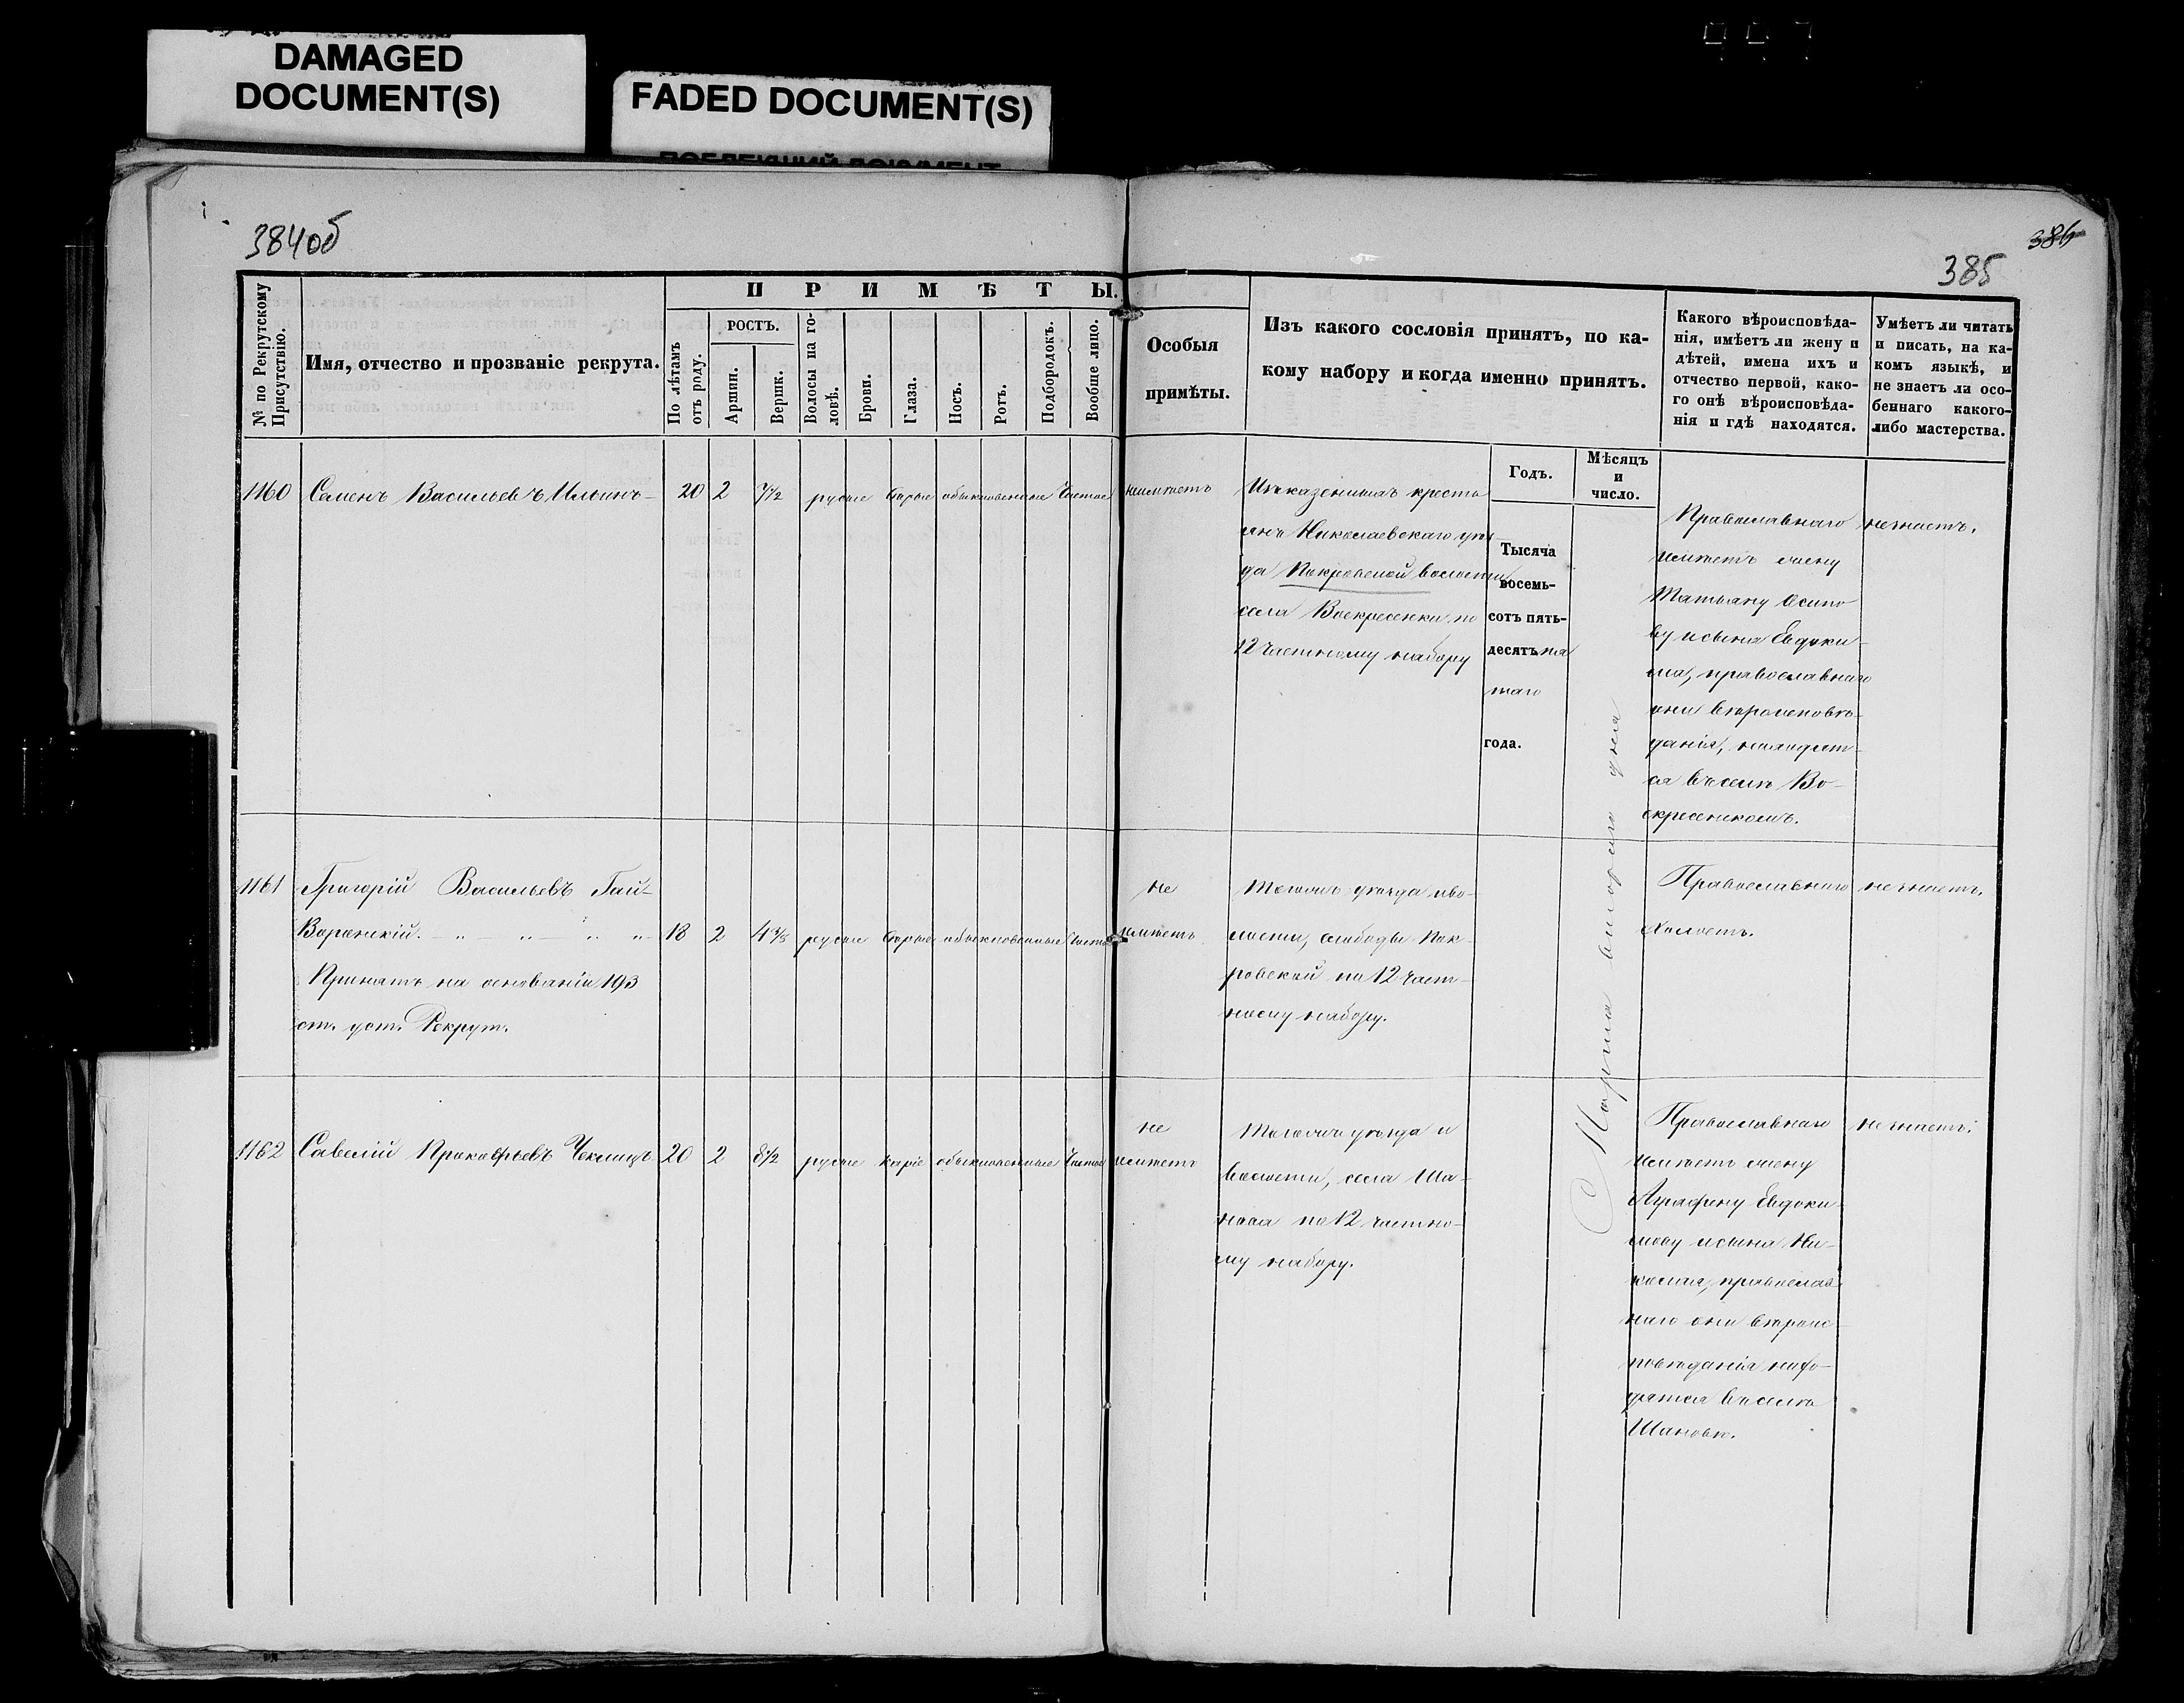 DAMAGED
DOCUMENT(S)
FADED DOCUMENT(S)
384 об
386
385
№ по Рекрутскому
Присутствію.
Имя, отчество и прозваніе рекрута.
ПРИМѢТЫ.
По лѣтамъ
отъ роду.
РОСТЪ.
Аршин.
Вершк.
Волосы на го-
ловѣ.
Брови.
Глаза.
Носъ.
Ротъ.
Подбородокъ.
Вообще лицо.
Особыя
примѣты.
Изъ какого сословія принятъ, по ка-
кому набору и когда именно принятъ.
Какого вѣроисповѣда-
нія, имѣетъ ли жену и
дѣтей, имена ихъ и
отчество первой, како-
го онѣ вѣроисповѣда-
нія и гдѣ находятся.
Умѣетъ ли читать
и писать, на ка-
комъ языкѣ, и
не знаетъ ли осо-
беннаго какого-
либо мастерства.
Годъ.
Мѣсяцъ
и
число.
1160 Семенъ Васильевъ Ильинъ 20 2 7½ русые сѣрые обыкновенные чистое неимѣетъ
Изъ казенныхъ кресть
янъ Николаевскаго уѣз-
да Покровской волости
села Воскресенки по
12 частному набору
Тысяча
восемь-
сотъ пять-
десятъ пя
таго
года.
Марта втораго дня
Православнаго
имѣетъ жену
Татьяну Осипо
ву и сына Евдоки-
ма, православнаго
они вѣроисповѣ-
данія, находят-
ся въ селѣ Во-
скресенкомъ.
незнаетъ.
1161 Григорій Васильевъ Гай-
Воронскій. 18 2 4⅜ русые сѣрые обыкновенные чистое
Принятъ на основаніи 193
ст. уст. Рекрут.
не
имѣетъ
Тогожъ уѣзда и во-
лости, слободы Пок-
ровской по 12 част-
ному набору.
Православнаго
холостъ.
незнаетъ.
1162 Савелій Прокофьевъ 20 2 8½ русые каріе обыкновенные чистое
не
имѣетъ
Тогожъ уѣзда и
волости, села Ша-
нова по 12 частно-
му набору.
Православнаго
имѣетъ жену
Аграфену Евдоки-
мову и сына Ни-
колая, православ-
наго они вѣроис-
повѣданія нахо-
дятся въ селѣ
Шановѣ.
незнаетъ.